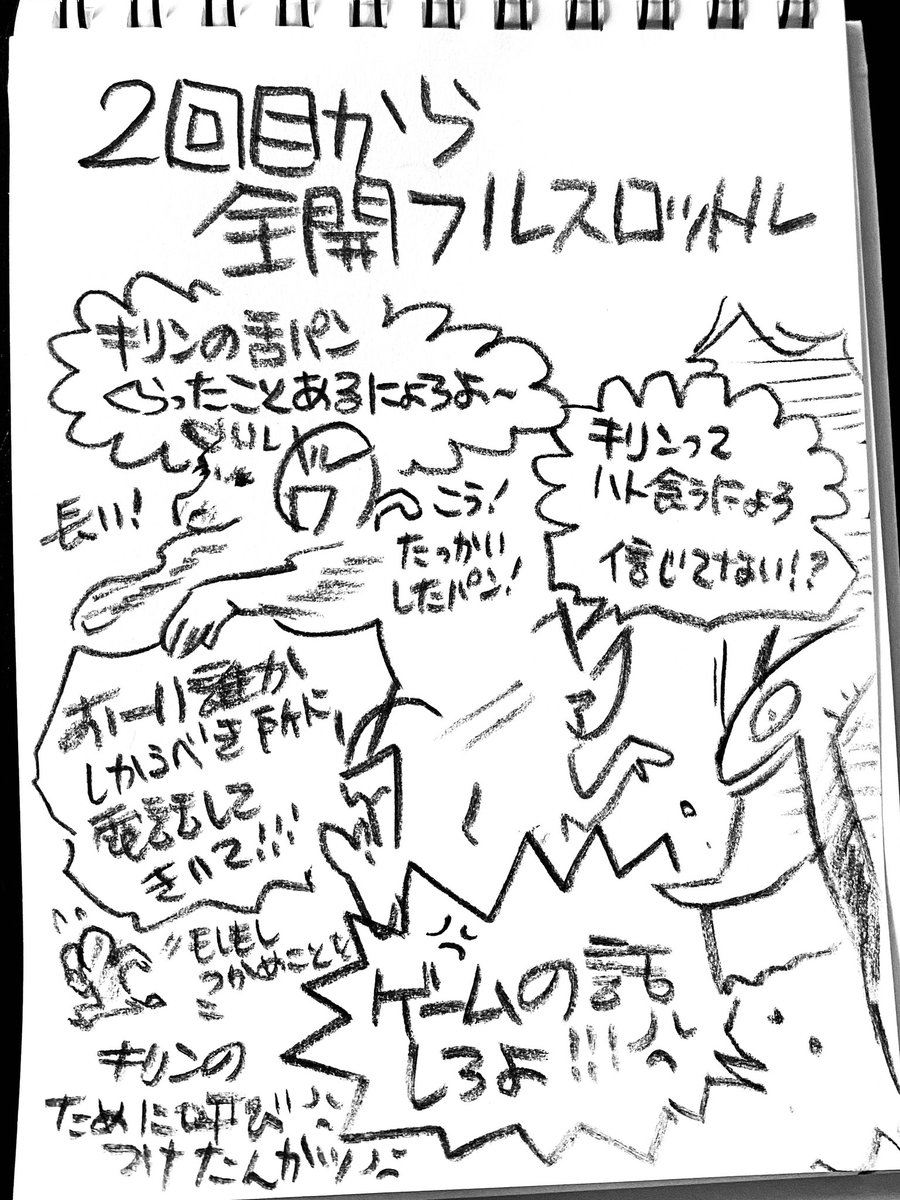 2回目から
全開フルスロットル
キリンの舌パン
くらったことあるにょろよ〜
長い!
こう!
たっかい
したパン!
キリンって
ハト食うにょろ
信じてない!?
おーい誰か
しかるべき所に
電話して
きいて!!!
もしもし
つかぬことを
ゲームの話
しろよ!!!
キリンの
ために呼び
つけたんかッ